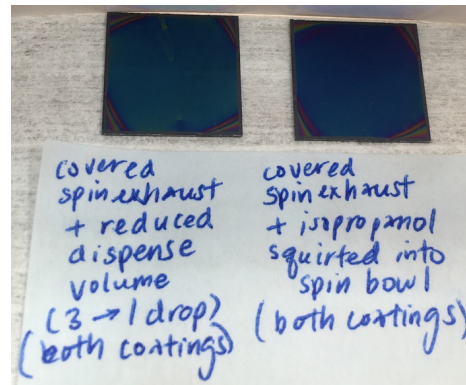 covered
spin exhaust
+ reduced
dispense
volume
(3 → 1 drop)
(both coatings)
covered
spin exhaust
+ isopropanol
squirted into
spin bowl
(both coatings)